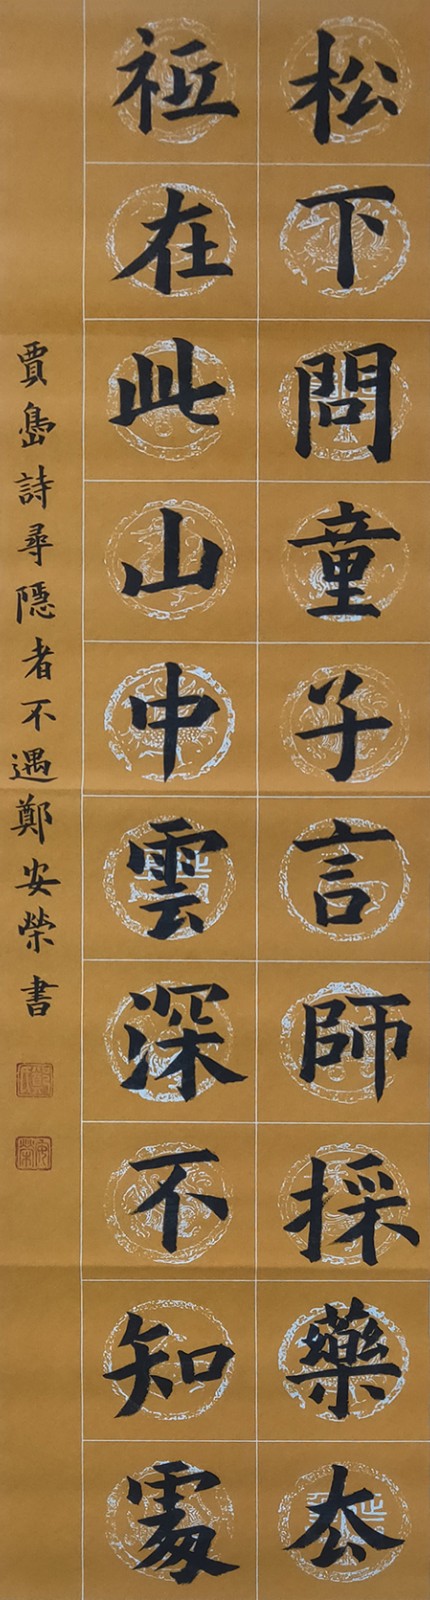 松下問童子言師採藥厺
祗在此山中雲深不知處
賈島詩尋隱者不遇鄭安榮書